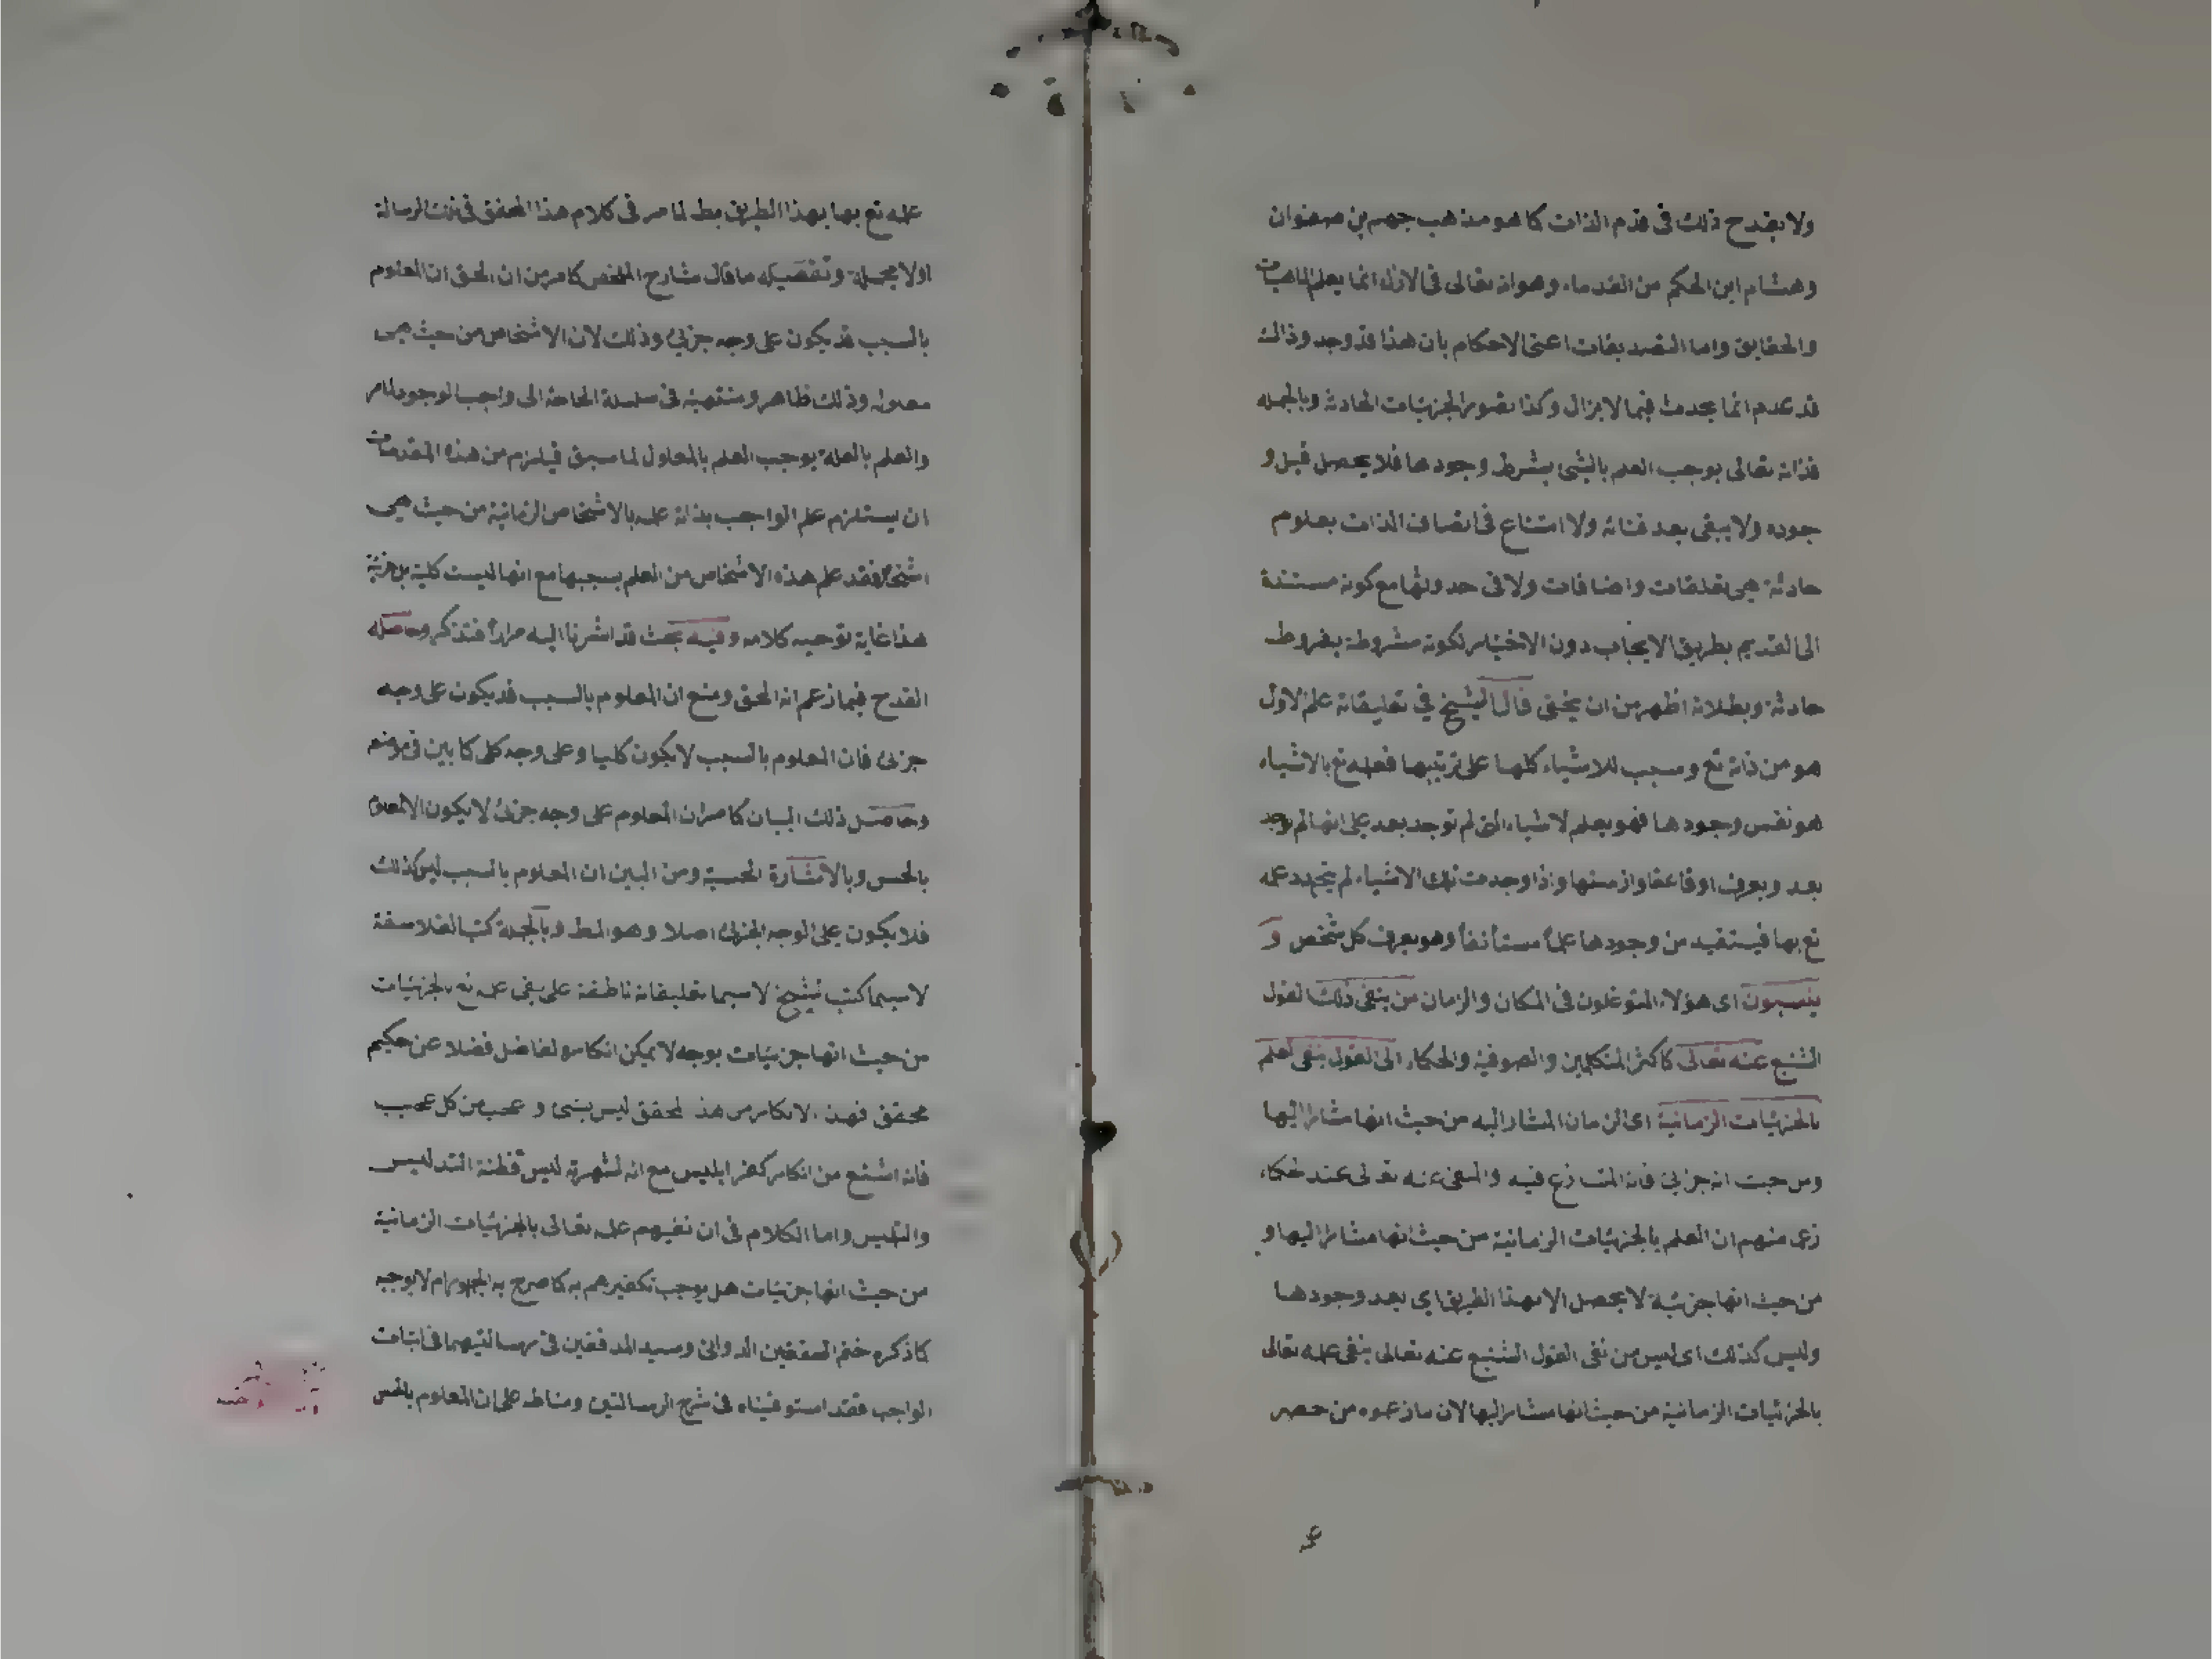 ولا يقدح ذلك فى قدم الذات كما هو مذهب جهم بن صفوان
وهشام ابن الحكم من القدماء وهو انه تعالى فى الازل انما يعلم الماهيات
والحقايق واما التصديقات اعنى الاحكام بان هذا قد وجد وذاك
قد عدم انما يحدث فيما لا يزال وكذا تصور الجزئيات الحادثة وبالجمله
فذاته تعالى يوجب العلم بالشى بشرط وجودها فلا يحصل قبل و
جوده ولا يبقى بعد فنائه ولا امتناع فى اتصاف الذات بعلوم
حادثة هى تعلقات واضافات ولا فى حدوثها مع كونه مستندة
الى القديم بطريق الايجاب دون الاختيار لكونه مشروطة بشروط
حادثة وبطلانه اظهر من ان يخفى قال الشيخ في تعليقاته علم الاول
هو من ذاته تع وسبب للاشياء كلها على ترتيبها فعلمه تع بالاشياء
هو نفس وجودها فهو يعلم لاشياء التى لم توجد بعد على انها لم توجد
بعد ويعرف اوقاتها وازمنتها واذا وجدت تلك الاشياء لم يتجدد علمه
تع بها فيستفيد من وجودها علما مستأنفا وهو يعرف كل شخص و
ينسبون اى هؤلاء المتوغلون فى المكان والزمان من ينفى ذلك القول
الشنيع عنه تعالى كاكثر المتكلمين والصوفية والحكماء الى القول بنفى العلم
بالجزئيات الزمانية اى الزمان المشار اليه من حيث انها مشارا اليها
ومن حيث انه جزئى فانه المتنازع فيه والمنفى عنه تعالى عند الحكماء
زعم منهم ان العلم بالجزئيات الزمانية من حيث انها مشارا اليها و
من حيث انها جزئية لا يحصل الا بهذا الطريق اى بعد وجودها
وليس كذلك اى ليس من نفى القول الشنيع عنه تعالى ينفى علمه تعالى
بالجزئيات الزمانية من حيث انها مشارا اليها لان ما زعموه من حصر
علمه تع بها بهذا الطريق بط لما مر فى كلام هذا المحقق فى تلك الرسالة
اولا مجملة وتفصيله ما قال شارح الملخص كما مر من ان الحق ان المعلوم
بالسبب قد يكون على وجه جزئى وذلك لان الاشخاص من حيث هى
معلوله وذلك ظاهر ومنتهية فى سلسلة الحاجة الى واجب الوجود لما مر
والعلم بالعلة يوجب العلم بالمعلول لما سبق فيلزم من هذه المقدمات
ان يستلزم علم الواجب بذاته علمه بالاشخاص الزمانية من حيث هى
اشخاص فقد علم هذه الاشخاص من العلم بسببها مع انها ليست كلية بل جزئية
هذا غاية توجيه كلامه وفيه بحث قد اشرنا اليه مرارا فتذكر وحاصله
القدح فيما زعم انه الحق ومنع ان المعلوم بالسبب قد يكون على وجه
جزئى فان المعلوم بالسبب لا يكون كليا وعلى وجه كلى كما بين فى موضعه
وحاصل ذلك البيان كما مر ان المعلوم على وجه جزئى لا يكون الا المعلوم
بالحس وبالاشارة الحسية ومن البين ان المعلوم بالسبب ليس كذلك
فلا يكون على الوجه الجزئى اصلا وهو المط وبالجملة كتب الفلاسفة
لا سيما كتب الشيخ لا سيما تعليقاته ناطقة على نفى علمه تع بالجزئيات
من حيث انها جزئيات بوجه لا يمكن انكاره لفاضل فضلا عن حكيم
محقق فهذا الانكار من هذا المحقق ليس بشى و عجب من كل عجيب
فانه اشنع من انكار كفر ابليس مع انه لشهرته ليس فطنة التدليس
والتلبيس واما الكلام فى ان نفيهم علمه تعالى بالجزئيات الزمانية
من حيث انها جزئيات هل يوجب تكفيرهم به كما صرح به الجمهور ام لا يوجبه
كما ذكره ختم المحققين الدوانى وسيد المدققين فى رسالتيهما فى اثبات
الواجب فقد استوفيناه فى شرح الرسالتين ومناطه على ان المعلوم بالحس